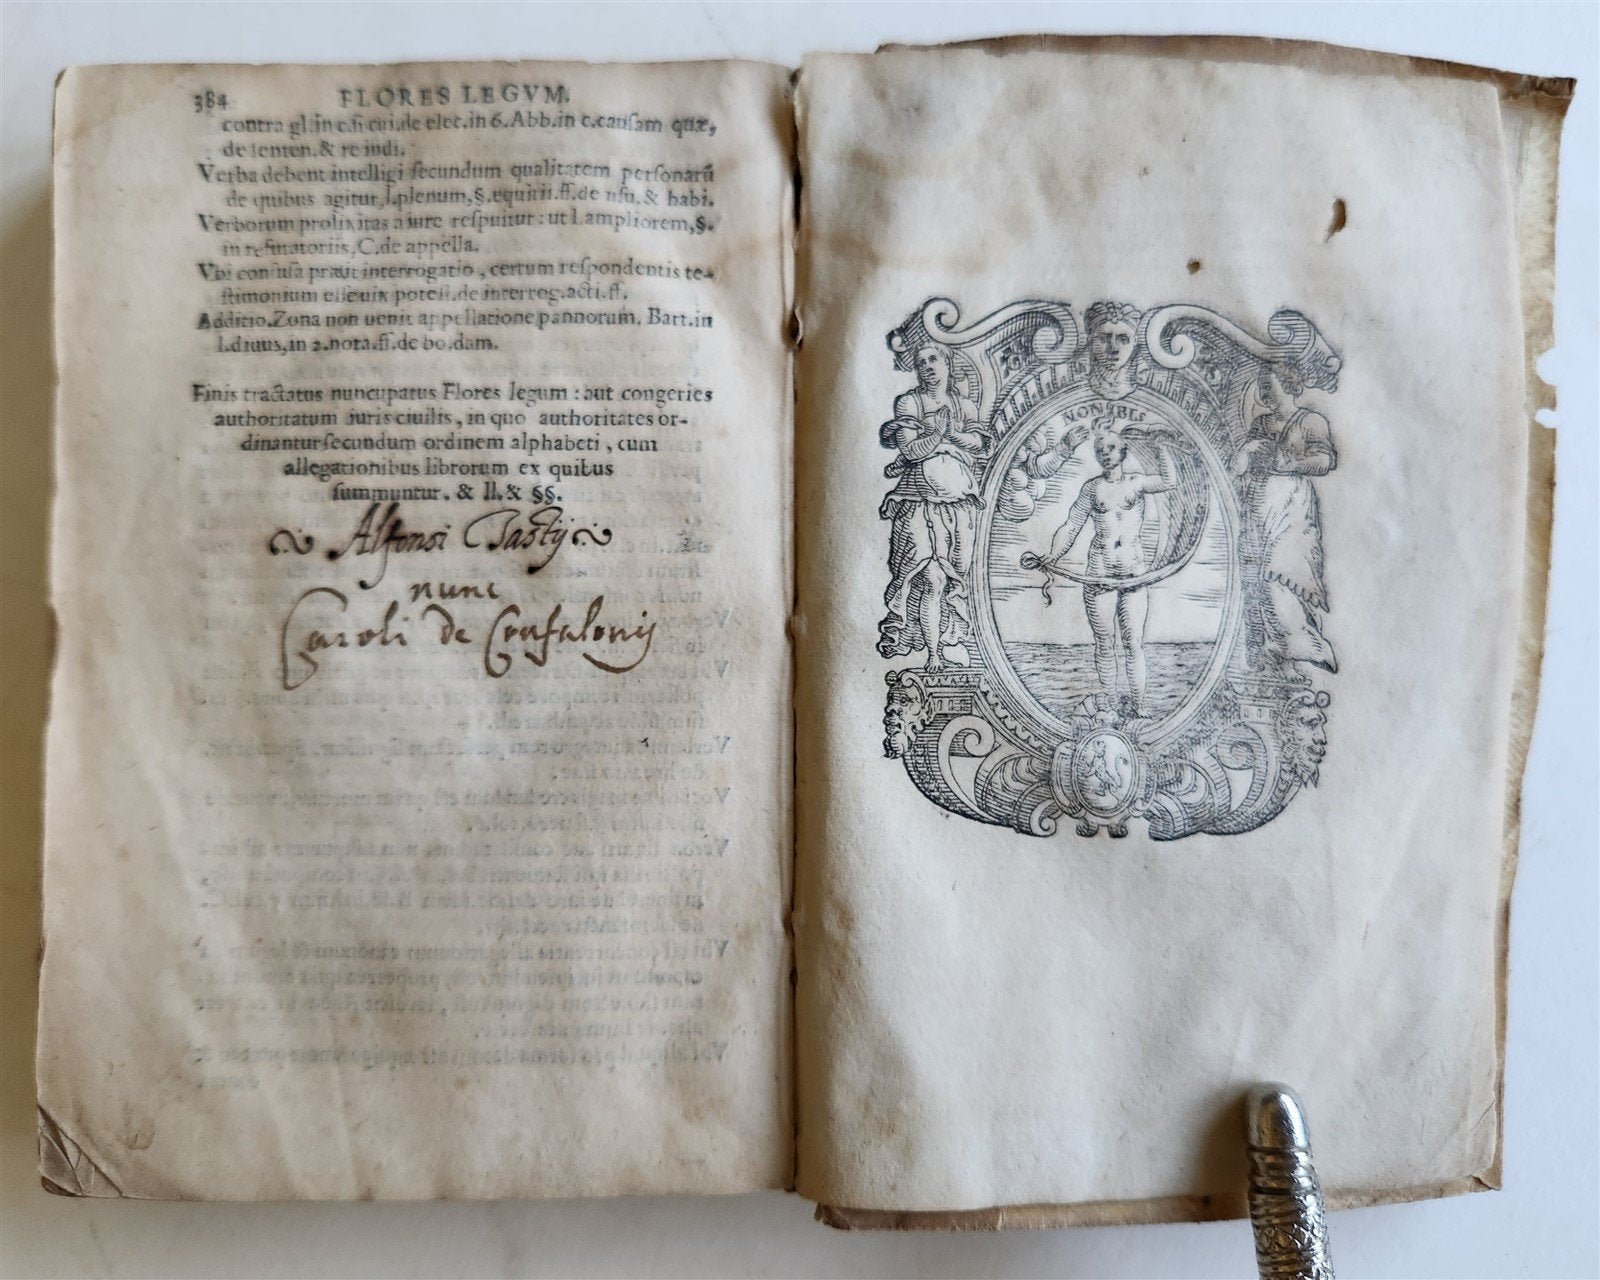 384 FLORES LEGVM.
contra gl. in c. si cui. de elec. in 6. Abb. in c. causam quæ,
de senten. & re iudi.
Verba debent intelligi secundum qualitatem personarũ
de quibus agitur, l. plenum, §. equitii. ff. de usu. & habi.
Verborum prolixitas a iure respuitur: ut l. ampliorem, §.
in refutatoriis, C. de appella.
Vbi confusa præit interrogatio, certum respondentis te-
stimonium esse uix potest. de interrog. acti. ff.
Additio. Zona non uenit appellatione pannorum. Bart. in
l. diuus, in 2. nota. ff. de bo. dam.
Finis tractatus nuncupatus Flores legum: aut congeries
authoritatum iuris ciuilis, in quo authoritates or-
dinantur secundum ordinem alphabeti, cum
allegationibus librorum ex quibus
summuntur. & ll. & §§.
Alfonsi Tastij
nunc
Caroli de Confalonij
NON